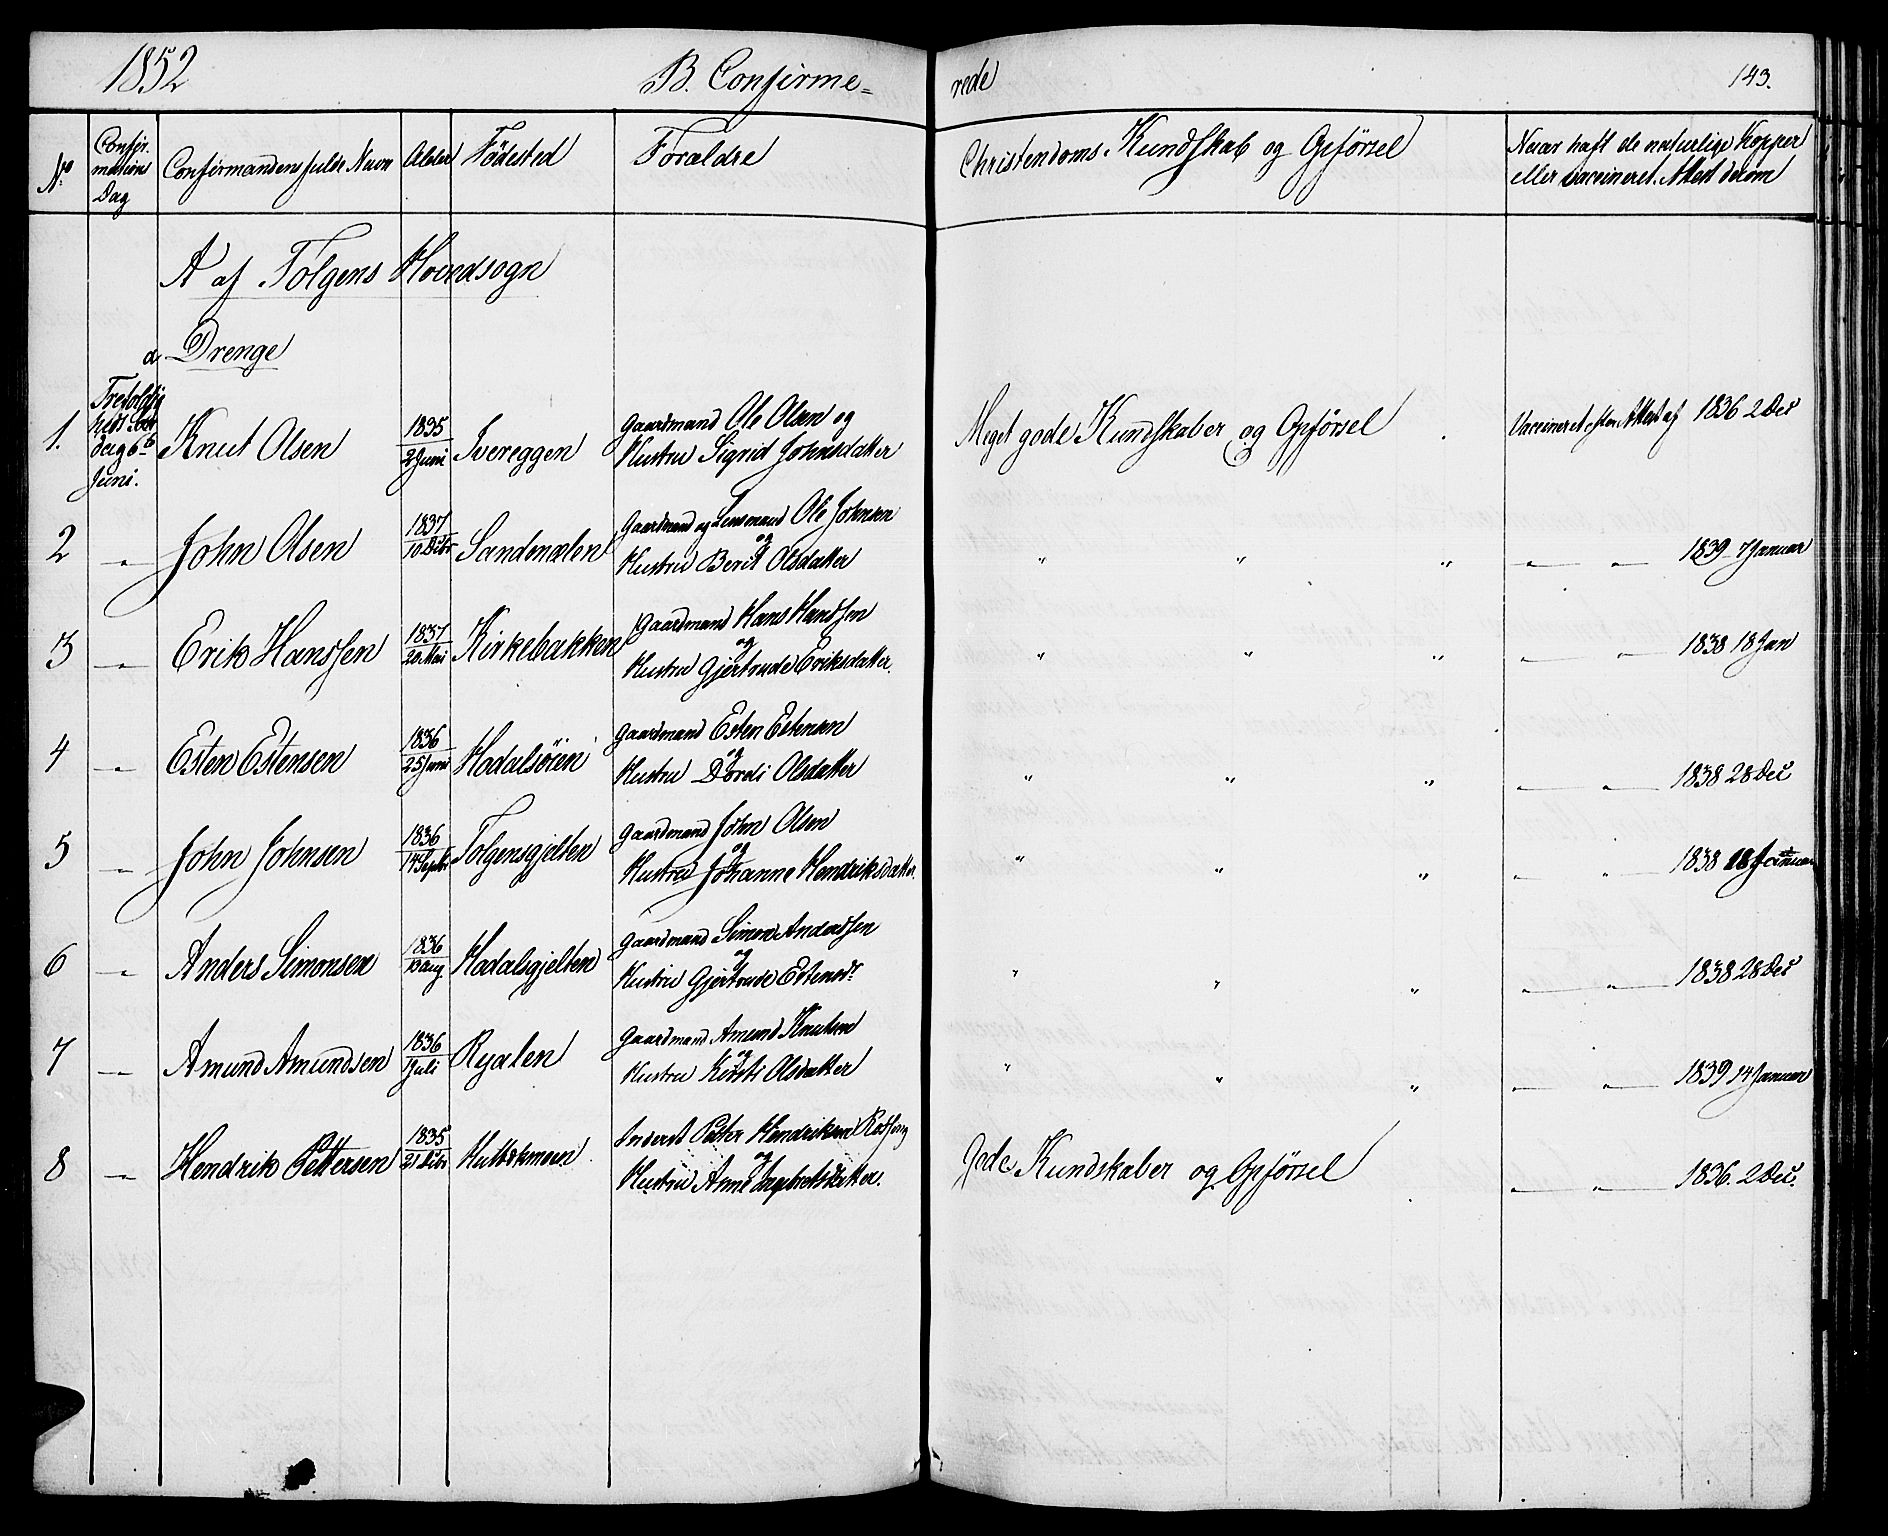 1852 B. Confirme= rede 143.
No Confir- mations Dag Confirmandens fulde Navn Alder Födested Forældre Christendoms Kundskab og Opførsel Naar haft de naturlige Kopper eller vaccineret. Attest derom
A af Tolgens Hovedsogn
a Drenge
1. Trefoldig heds Søn dag 6te Juni. Knut Olsen 1835 2 Juni Svereggen Gaardmand Ole Olsen og Hustru Sigrid Johnsdatter Meget gode Kundskaber og Opførsel . Vaccineret efter Attest af 1836 2 Dec
2 〃 John Olsen 1837 10 Dcbr Sandmælen Gaardmand og Lensmand Ole Johnsen og Hustru Berit Olsdatter 〃 〃 〃 〃 〃 1839 7 Januar
3 〃 Erik Hanssen 1837 20 Mai Kirkebakken Gaardmand Hans Hanssen og Hustru Gjertrude Eriksdatter. 〃 〃 〃 〃 〃 1838 18 Jan
4 〃 Esten Estensen 1836 25 Juni Hodalsöien Gaardmand Esten Estensen og Hustru Dordi Olsdatter 〃 〃 〃 〃 〃 1838 28 Dec
5 〃 John Johnsen 1836 14 Septbr Tolgensgjelten Gaardmand John Olsen og Hustru Johanne Hendriksdatter. 〃 〃 〃 〃 〃 1838 18 Januar
6 〃 Anders Simonsen 1836 13 aug. Hodalsgjelten Gaardmand Simon Anderssen og Hustru Gjertrude Estensdr 〃 〃 〃 〃 〃 1838 28 Dec
7 〃 Amund Amundsen 1836 1 Juli Ryalen Gaardmand Amund Knutsen og Hustru Kirsti Olsdatter 〃 〃 〃 〃 〃 1839 14 Januar
8 〃 Hendrik Pettersen 1835 21 Dcbr Inderst Petter Hendriksen og Hustru Anne Ingebretsdatter. Gode Kundskaber og Opførsel . 〃 〃 1836. 2 Dec.